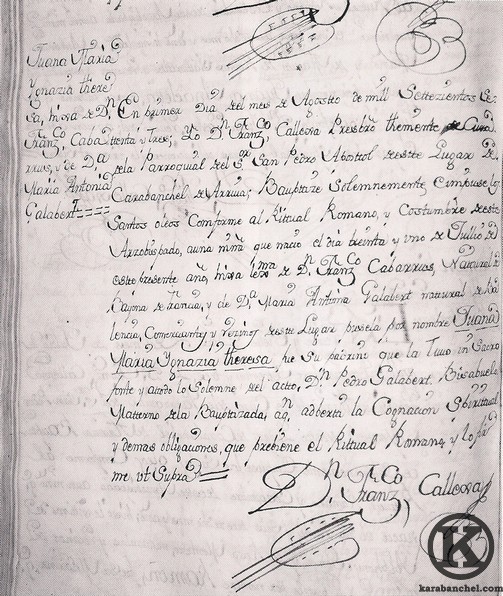 Juana Maria
Ygnazia there
sa, hija de Dn.
Franzco. Caba
rrus, y de Da.
Maria Antonia
Galabert
En primer Dia del mes de Agostto de mill Settezientos Se
ttentta y Tres; Yo Dn. Franzco. Calleora Presbro. theniente Cura
dela Parroquial del Sor. San Pedro Aposttol deeste Lugar de
Carabanchel de Arriva; Bauptize Solemnemente, e impuse los
Santos oleos Comforme al Rittual Romano, y Costumbre deeste
Arzobispado, auna niña que nació el dia treinta y uno de Jullio de
este presente año, hija lexma. de Dn. Franzco. Cabarrus, Natural de
Bayona de Francia, y de Da. Maria Antonia Galabert natural de Ba
lencia, y vezinos deeste Lugar pusela por nombre Juana
Maria Ygnazia theresa, fue Su padrino que la Tuvo in Sacro
fonte y al Solemne del actto, Dn. Pedro Galabert, Bisabuelo
Matterno dela Bauptizada, aqn. adbertí la Cognacion Spirittual
y demas obligaciones, que prebiene el Rittual Romano, y lo fir
me, vt Supra
Dn. Franzco. Calleora
K
karabanchel.com